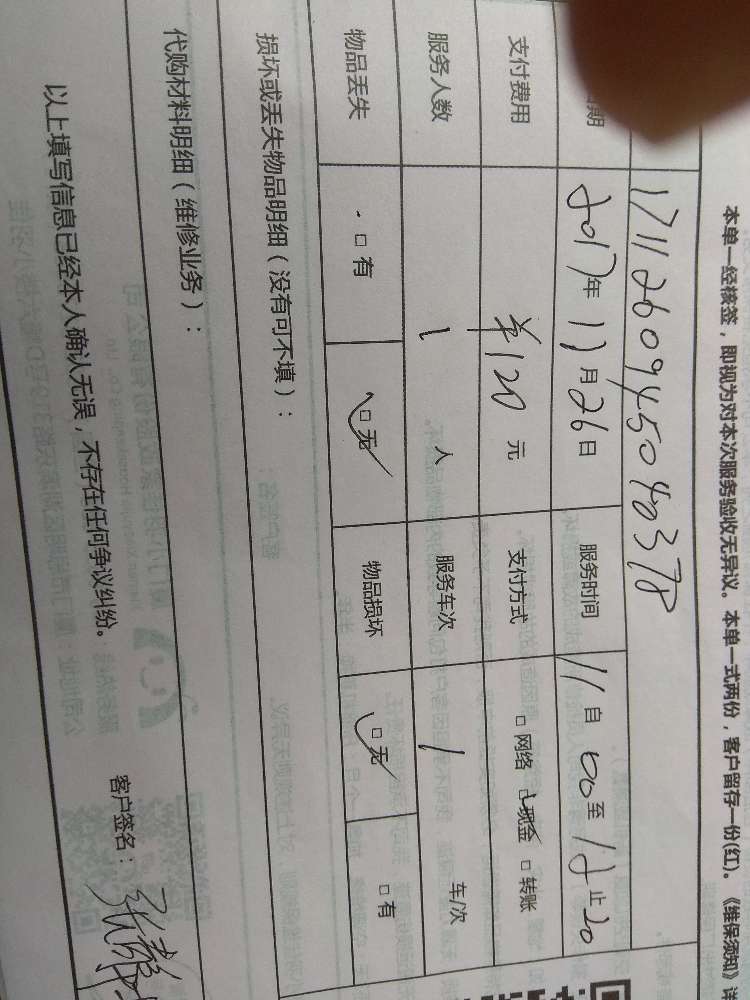 本单一经核签，即视为对本次服务验收无异议。本单一式两份，客户留存一份(红)。《维保须知》详
1711260945040378
期 2017年 11月 26日 服务时间 11自00至12止20
支付费用 ¥120元 支付方式 □网络 □现金 □转账
服务人数 1人 服务车次 1 车/次
物品丢失 □有 □无 物品损坏 □无 □有
损坏或丢失物品明细（没有可不填）：
代购材料明细（维修业务）：
以上填写信息已经本人确认无误，不存在任何争议纠纷。 客户签名：